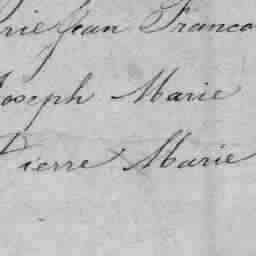 rie Jean Franco
Joseph Marie
Pierre Marie